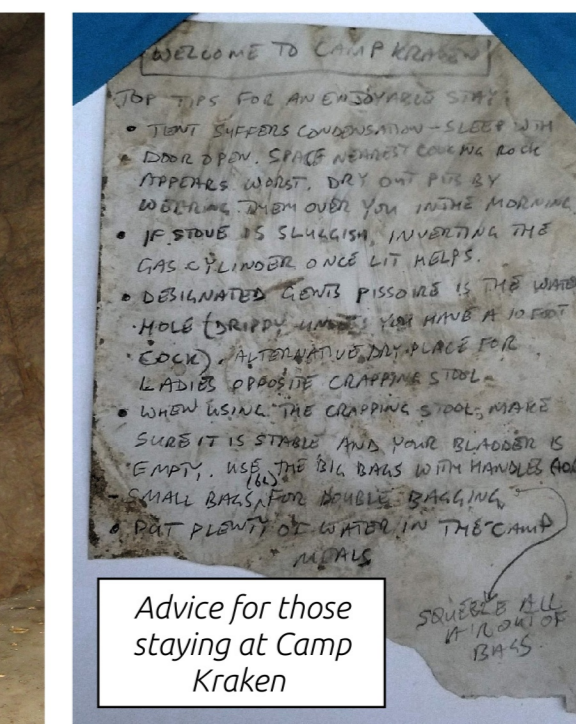 WELCOME TO CAMP KRAKEN
TOP TIPS FOR AN ENJOYABLE STAY:
• TENT SUFFERS CONDENSATION - SLEEP WITH
DOOR OPEN. SPACE NEAREST COOKING ROCK
APPEARS WORST. DRY OUT PITS BY
WEARING THEM OVER YOU IN THE MORNING
• IF STOVE IS SLUGGISH, INVERTING THE
GAS CYLINDER ONCE LIT HELPS.
• DESIGNATED GENTS PISSOIRE IS THE WATER
HOLE (DRIPPY UNLESS YOU HAVE A 10 FOOT
COCK). ALTERNATIVE DRY PLACE FOR
LADIES OPPOSITE CRAPPING STOOL.
• WHEN USING THE CRAPPING STOOL, MAKE
SURE IT IS STABLE AND YOUR BLADDER IS
EMPTY. USE THE BIG BAGS WITH HANDLES
SMALL BAGS (6L) FOR DOUBLE BAGGING
• PUT PLENTY OF WATER IN THE CAMP
MEALS
SQUEEZE ALL
AIR OUT OF
BAGS.
Advice for those
staying at Camp
Kraken